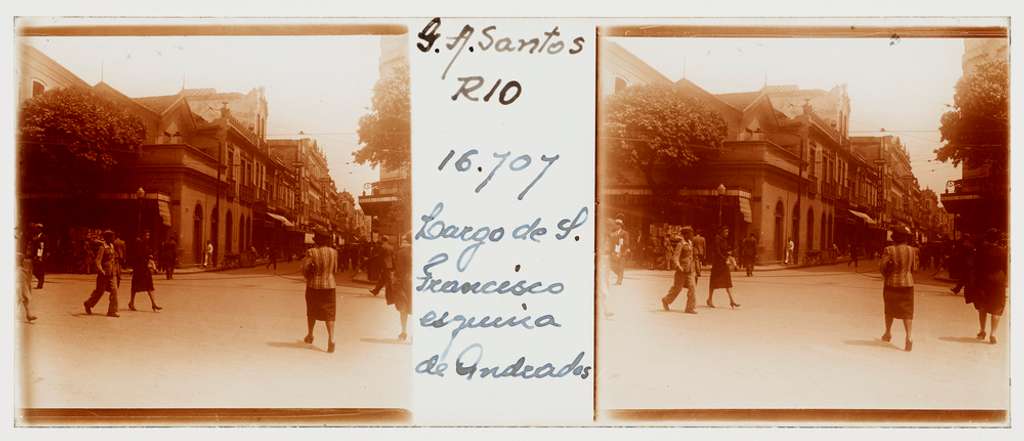 G. A. Santos
RIO
16.707
Largo de S.
Francisco
esquina
de Andradas